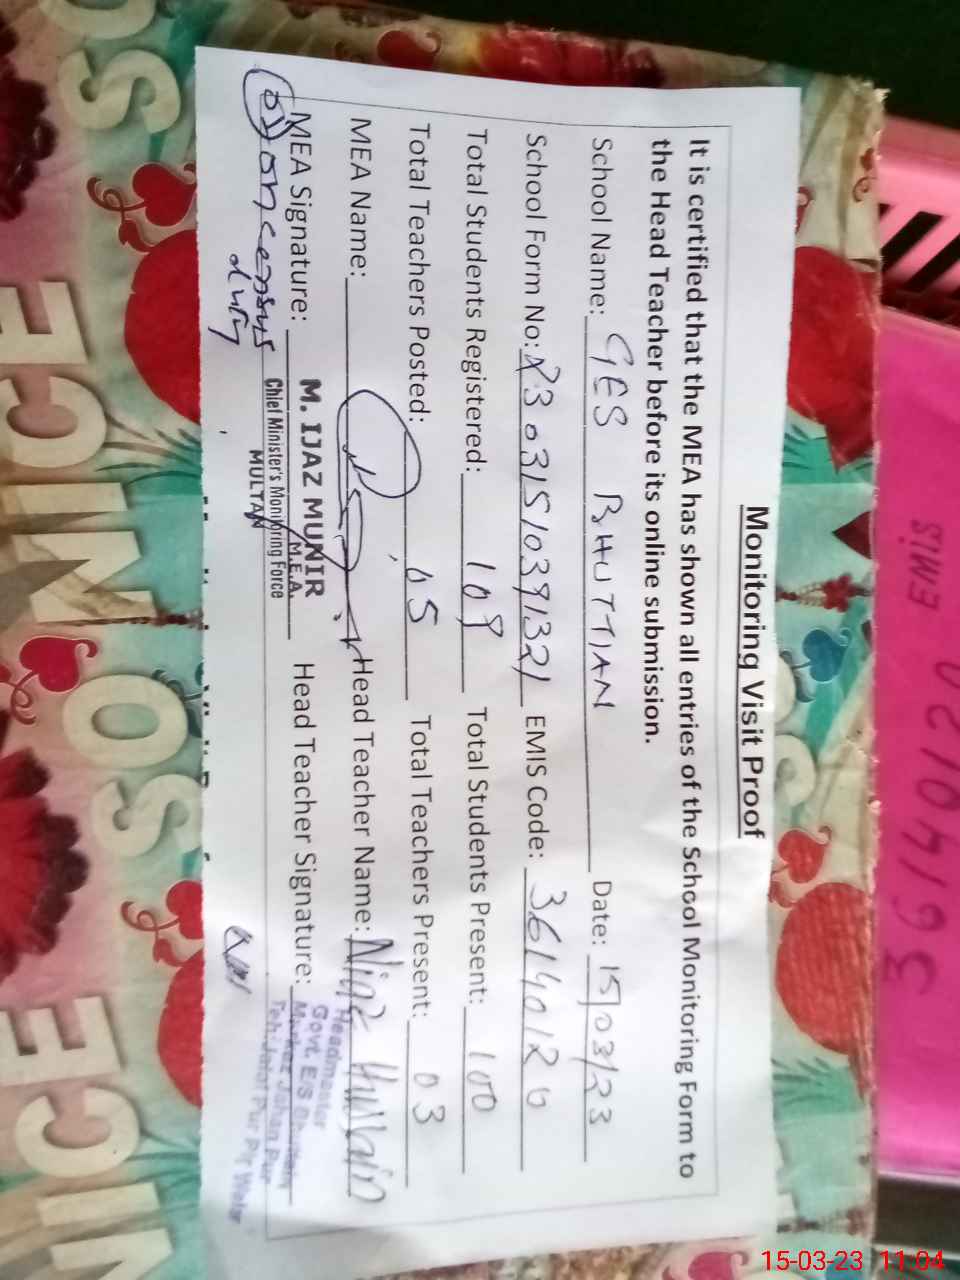 Monitoring Visit Proof
It is certified that the MEA has shown all entries of the School Monitoring Form to
the Head Teacher before its online submission.
School Name: GES BHUTTIAN Date: 15/03/23
School Form No: R3031510391321 EMIS Code: 36140120
Total Students Registered: 109 Total Students Present: 100
Total Teachers Posted: 05 Total Teachers Present: 03
MEA Name: Head Teacher Name: Niaz Hussain
MEA Signature: M. IJAZ MUNIR Head Teacher Signature:
M.E.A.
Chief Minister's Monitoring Force
MULTAN
01 on census
duty
Headmaster
Govt. E/S
Markaz Jahan Pur
EMIS
36140120
SO NICE
SO NICE
SO NICE
15-03-23 11:04